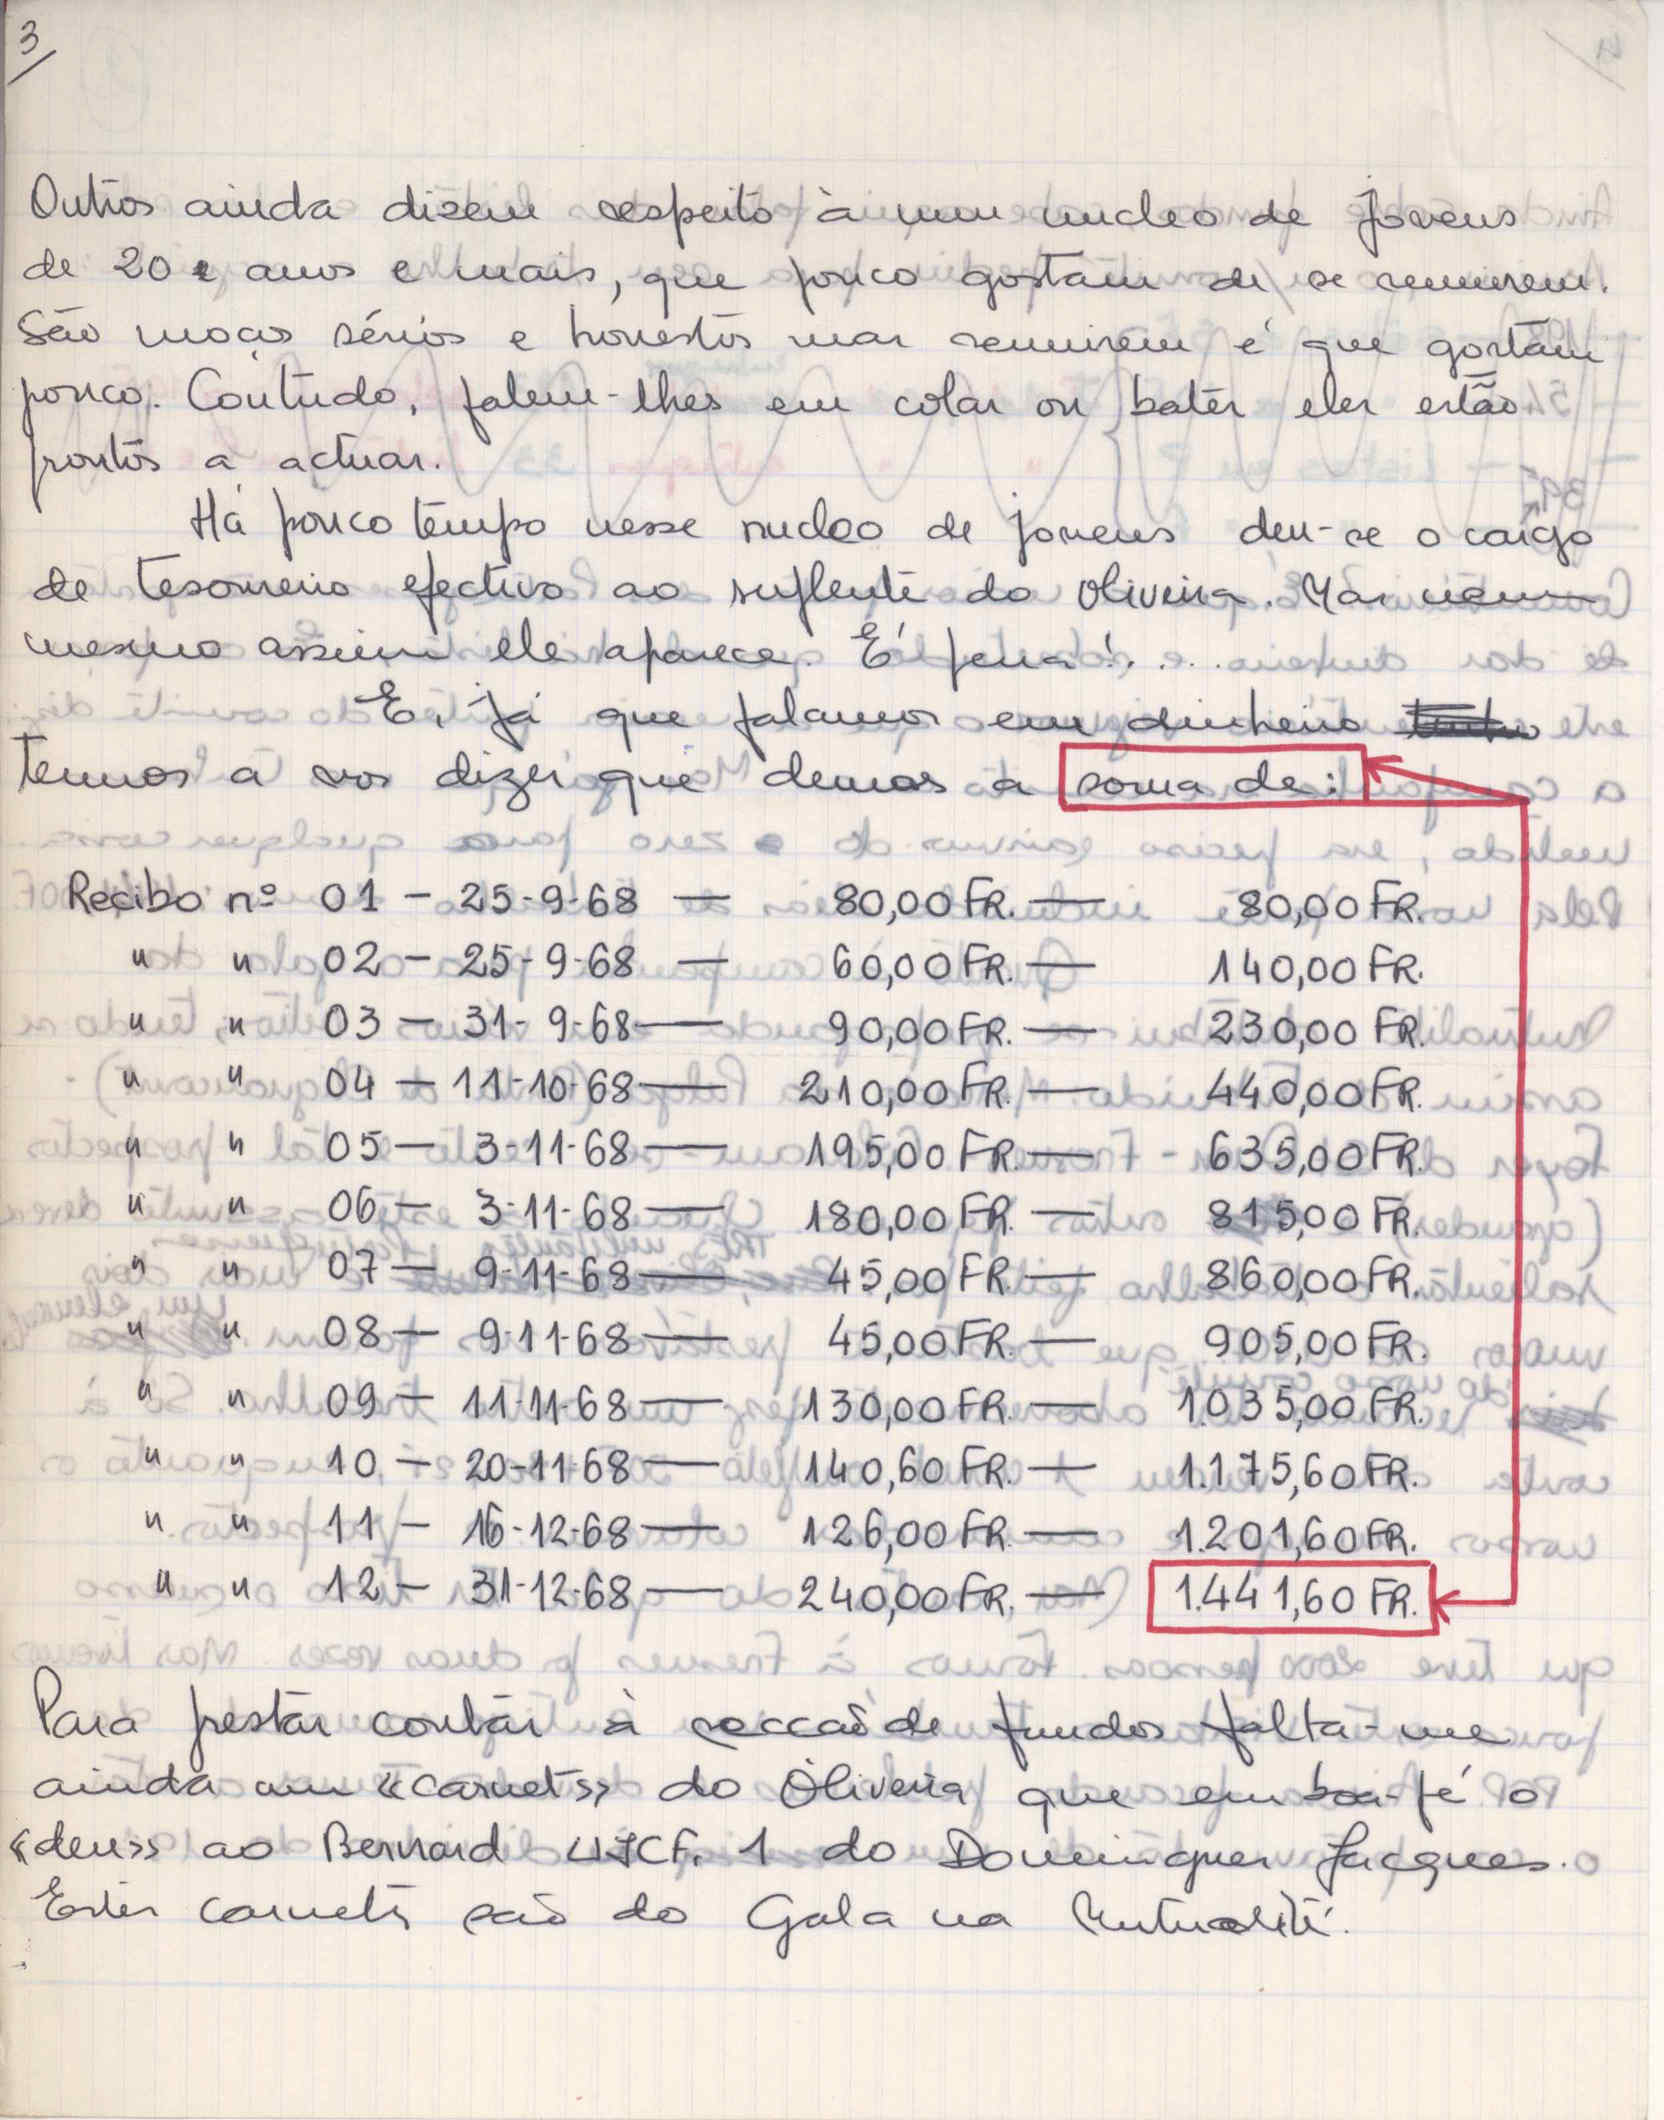 3
Outros ainda dizem respeito à um nucleo de jovens
de 20 e anos e mais, que pouco gostam de se reunirem.
São moços sérios e honestos mas reunirem é que gostam
pouco. Contudo, falem-lhes em colar ou bater eles estão
prontos a actuar.
Há pouco tempo nesse nucleo de jovens deu-se o cargo
de tesoureiro efectivo ao suplente do Oliveira. Mas nem
mesmo assim ele aparece. É pena!...
E, já que falamos em dinheiro
temos a vos dizer que demos a soma de:
Recibo nº 01 - 25-9-68 — 80,00 FR. — 80,00 FR.
" " 02 - 25-9-68 — 60,00 FR. — 140,00 FR.
" " 03 - 31-9-68 — 90,00 FR. — 230,00 FR.
" " 04 - 11-10-68 — 210,00 FR. — 440,00 FR.
" " 05 - 3-11-68 — 195,00 FR. — 635,00 FR.
" " 06 - 3-11-68 — 180,00 FR. — 815,00 FR.
" " 07 - 9-11-68 — 45,00 FR. — 860,00 FR.
" " 08 - 9-11-68 — 45,00 FR. — 905,00 FR.
" " 09 - 11-11-68 — 130,00 FR. — 1.035,00 FR.
" " 10 - 20-11-68 — 140,60 FR. — 1.175,60 FR.
" " 11 - 16-12-68 — 126,00 FR. — 1.201,60 FR.
" " 12 - 31-12-68 — 240,00 FR. — 1.441,60 FR.
Para prestar contas à secção de fundos falta-me
ainda um «carnets» do Oliveira que em boa-fé o
«deu» ao Bernard UJCF. 1 do Domingues Jacques.
Estes carnets são do Gala na Mutualité.